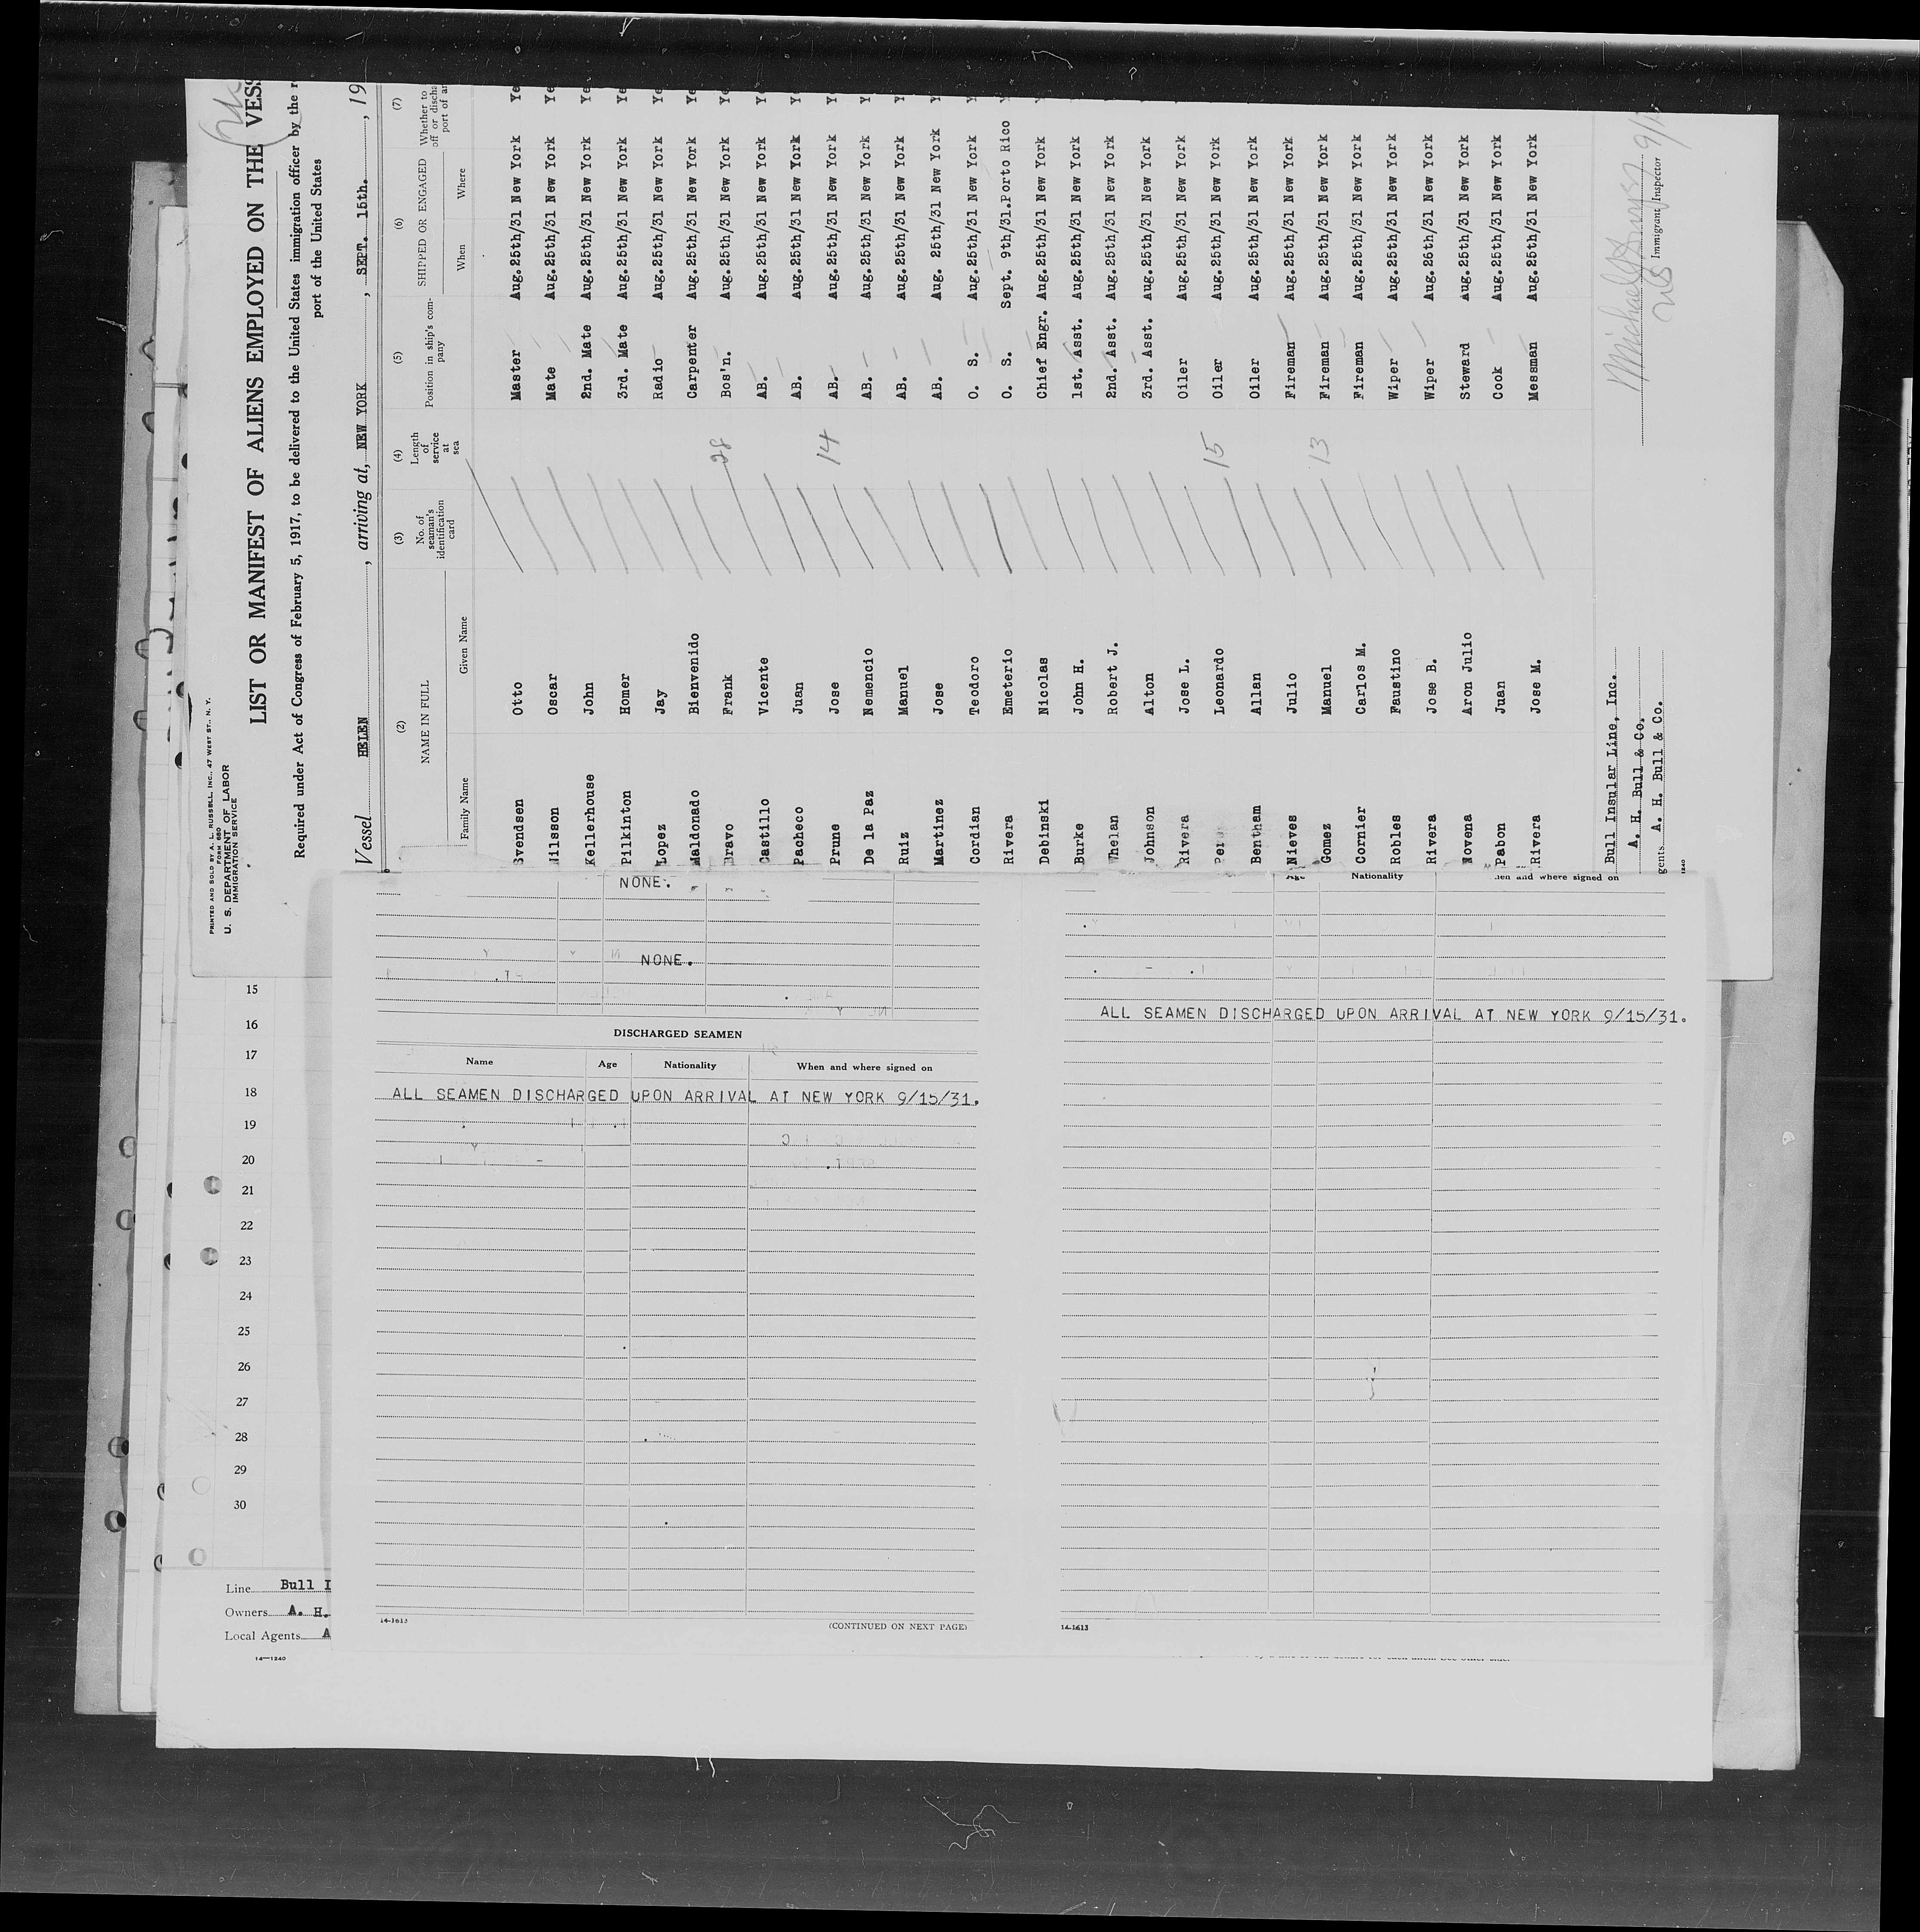 PRINTED AND SOLD BY A. L. RUSSELL, INC., 47 WEST ST., N. Y.
FORM 680
U. S. DEPARTMENT OF LABOR
IMMIGRATION SERVICE
LIST OR MANIFEST OF ALIENS EMPLOYED ON THE VESS
Required under Act of Congress of February 5, 1917, to be delivered to the United States immigration officer by the r
port of the United States
Vessel HELEN, arriving at, NEW YORK, SEPT. 15th., 19
(2) (3) (4) (5) (6) (7)
NAME IN FULL No. of seaman's identification card Length of service at sea Position in ship's company SHIPPED OR ENGAGED Whether to
off or discha
port of ar
Family Name Given Name When Where
Svendsen Otto Master Aug.25th/31 New York Ye
Nilsson Oscar Mate Aug.25th/31 New York Ye
Kellerhouse John 2nd. Mate Aug.25th/31 New York Ye
Pilkinton Homer 3rd. Mate Aug.25th/31 New York Ye
Lopez Jay Radio Aug.25th/31 New York Ye
Maldonado Bienvenido Carpenter Aug.25th/31 New York Ye
Bravo Frank 28 Bos'n. Aug.25th/31 New York Ye
Castillo Vicente AB. Aug.25th/31 New York Y
Pacheco Juan AB. Aug.25th/31 New York Y
Prune Jose 14 AB. Aug.25th/31 New York Y
De la Paz Nemencio AB. Aug.25th/31 New York Y
Ruiz Manuel AB. Aug.25th/31 New York Y
Martinez Jose AB. Aug. 25th/31 New York Y
Cordian Teodoro O. S. Aug.25th/31 New York Y
Rivera Emeterio O. S. Sept. 9th/31.Porto Rico Y
Debinski Nicolas Chief Engr. Aug.25th/31 New York Y
Burke John H. 1st. Asst. Aug.25th/31 New York
Whelan Robert J. 2nd. Asst. Aug.25th/31 New York
Johnson Alton 3rd. Asst. Aug.25th/31 New York
Rivera Jose L. Oiler Aug.25th/31 New York
Leonardo 15 Oiler Aug.25th/31 New York
Bentham Allan Oiler Aug.25th/31 New York
Nieves Julio Fireman Aug.25th/31 New York
Gomez Manuel 13 Fireman Aug.25th/31 New York
Cornier Carlos M. Fireman Aug.25th/31 New York
Robles Faustino Wiper Aug.25th/31 New York
Rivera Jose B. Wiper Aug.26th/31 New York
Novena Aron Julio Steward Aug.25th/31 New York
Pabon Juan Cook Aug.25th/31 New York
Rivera Jose M. Messman Aug.25th/31 New York
Bull Insular Line, Inc.
A. H. Bull & Co.
gents A. H. Bull & Co.
1240
Immigrant Inspector
NONE.
NONE.
DISCHARGED SEAMEN
Name Age Nationality When and where signed on
ALL SEAMEN DISCHARGED UPON ARRIVAL AT NEW YORK 9/15/31.
14-1613
(CONTINUED ON NEXT PAGE)
Age Nationality hen and where signed on
ALL SEAMEN DISCHARGED UPON ARRIVAL AT NEW YORK 9/15/31.
14-1613
15
16
17
18
19
20
21
22
23
24
25
26
27
28
29
30
Line Bull I
Owners A. H.
Local Agents A
14—1240